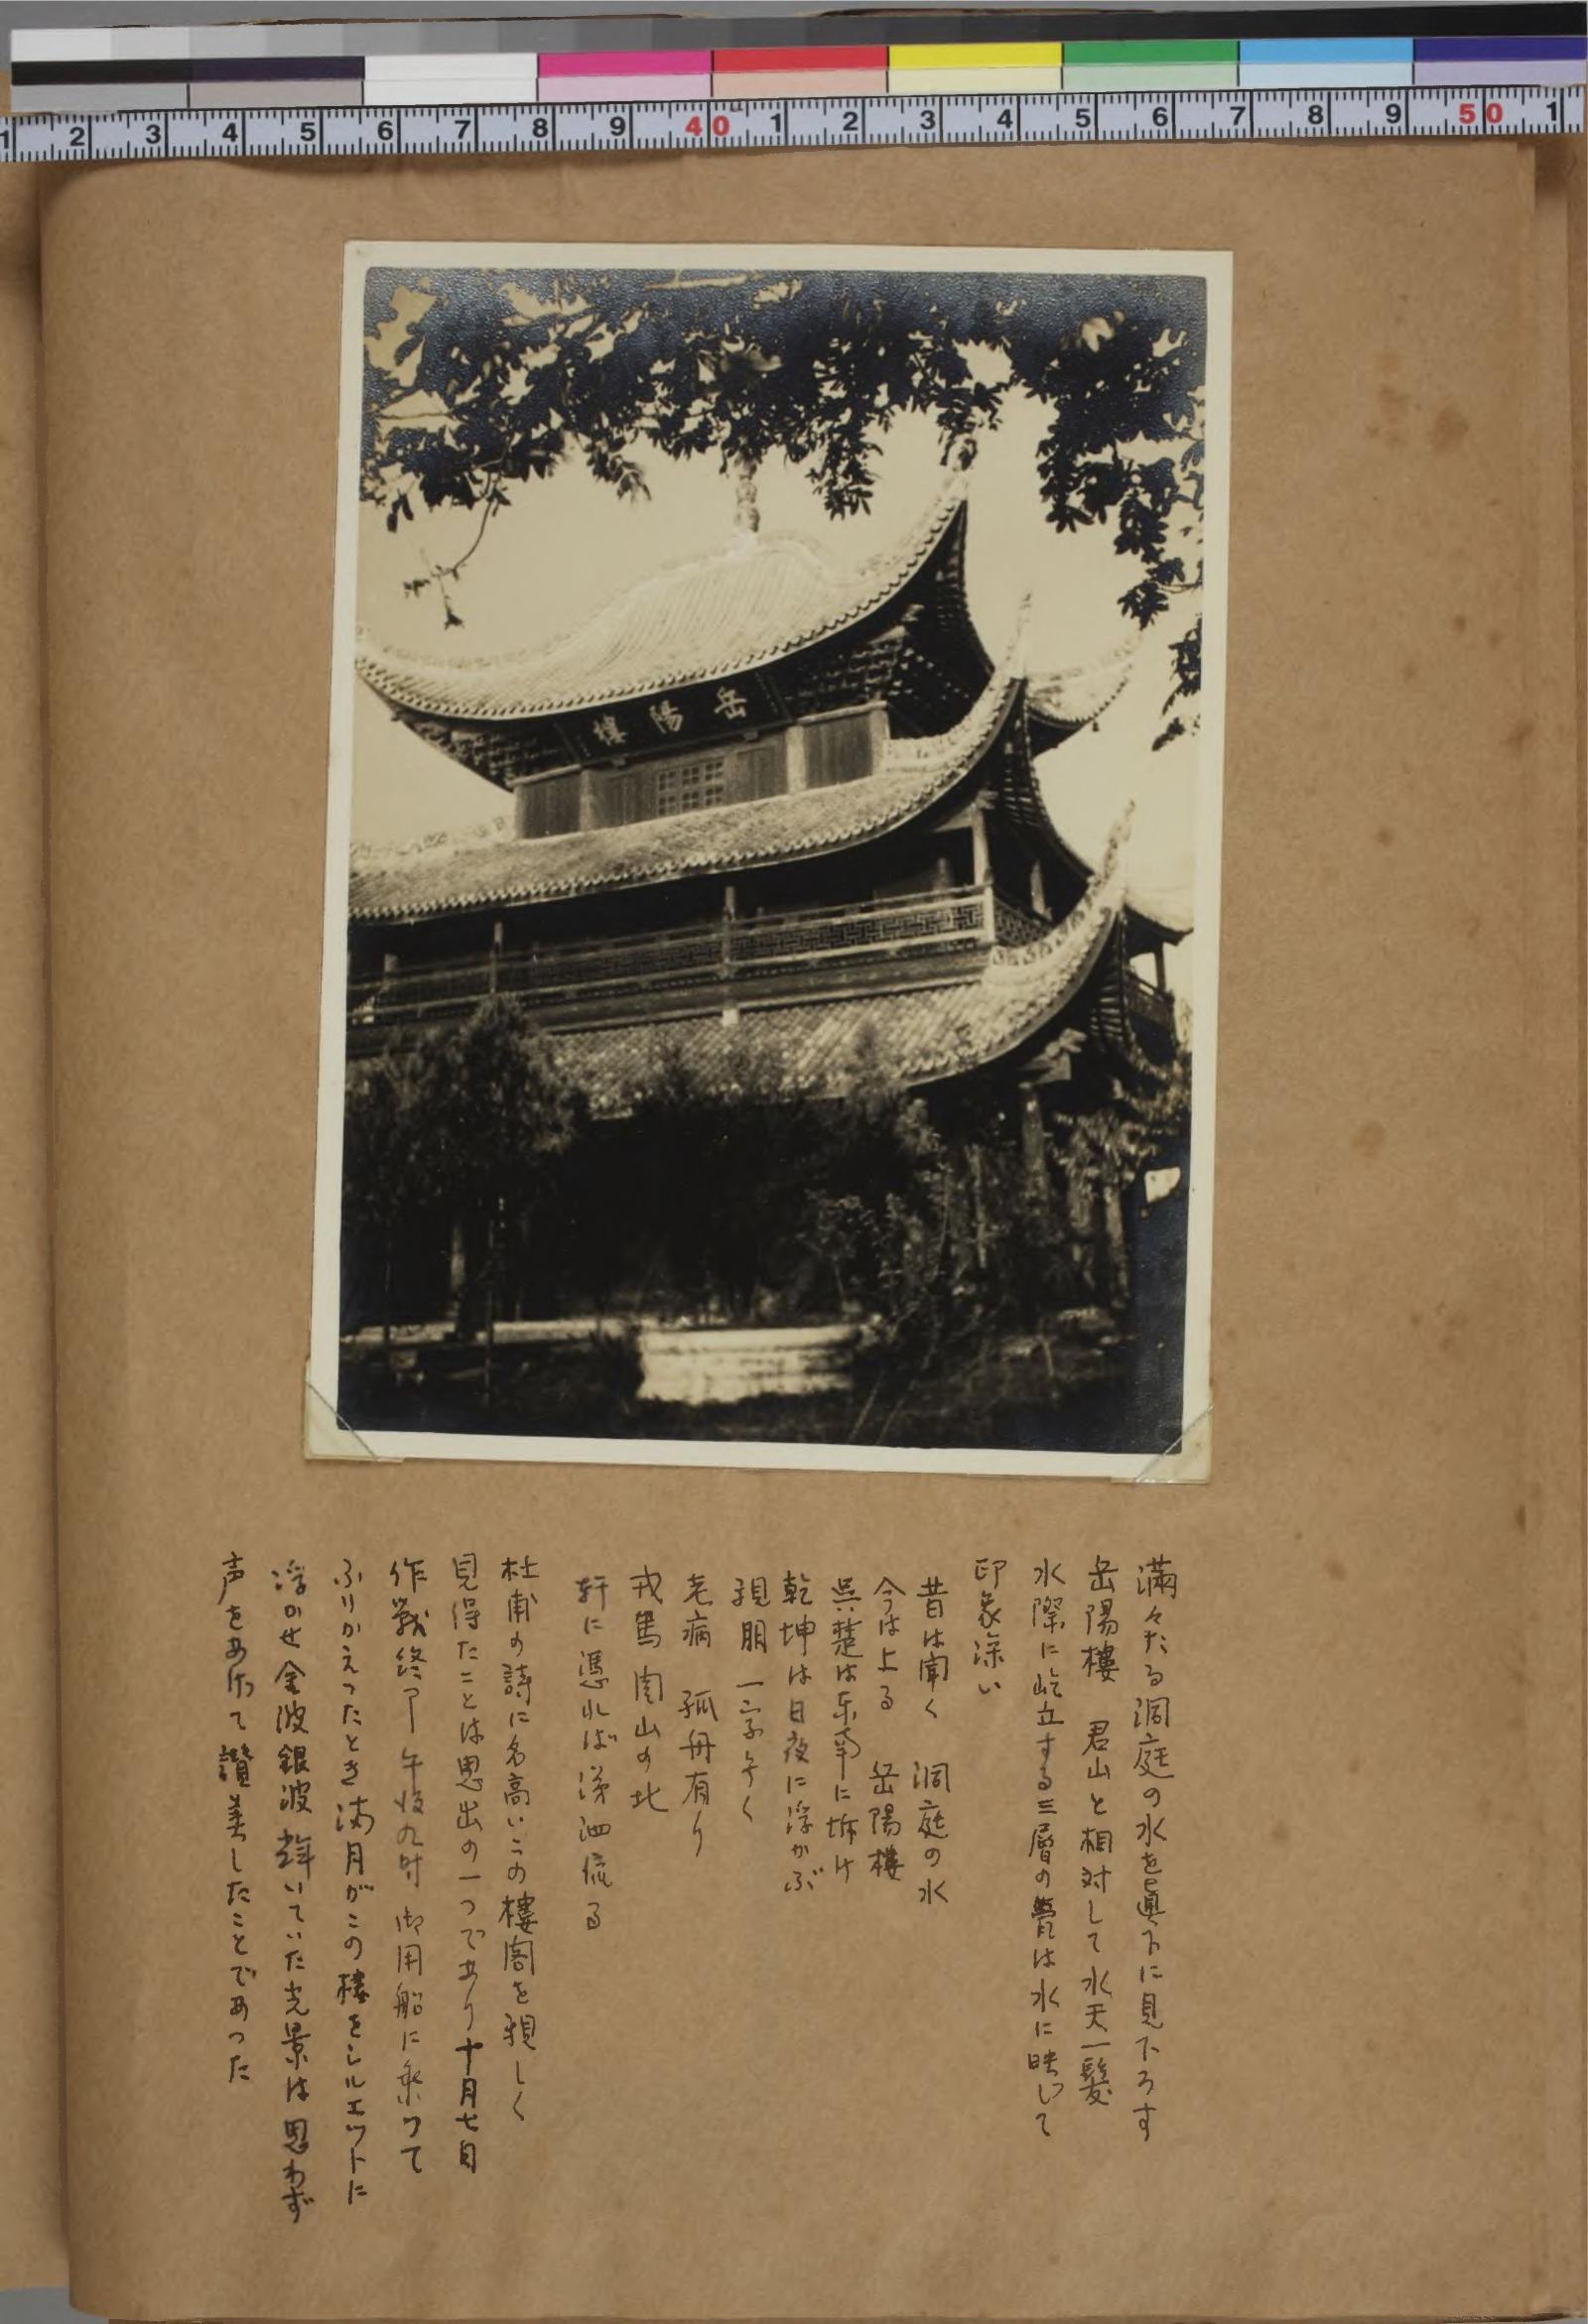 1 2 3 4 5 6 7 8 9 40 1 2 3 4 5 6 7 8 9 50 1
岳陽樓
満々たる洞庭の水を眞下に見下ろす
岳陽樓 君山と相対して水天一髪
水際に屹立する三層の甍は水に映じて
印象深い
昔は聞く 洞庭の水
今は上る 岳陽樓
呉楚は东南に坼け
乾坤は日夜に浮かぶ
親朋 一字无く
老病 孤舟有り
戎馬 関山の北
軒に憑れば涕泗流る
杜甫の詩に名高いこの樓閣を親しく
見得たことは思出の一つであり十月七日
作戦終了 午後九时 御用船に乗つて
ふりかえつたとき満月がこの樓をシルエットに
浮かせ金波銀波 輝いていた光景は思わず
声をあげて讃美したことであつた